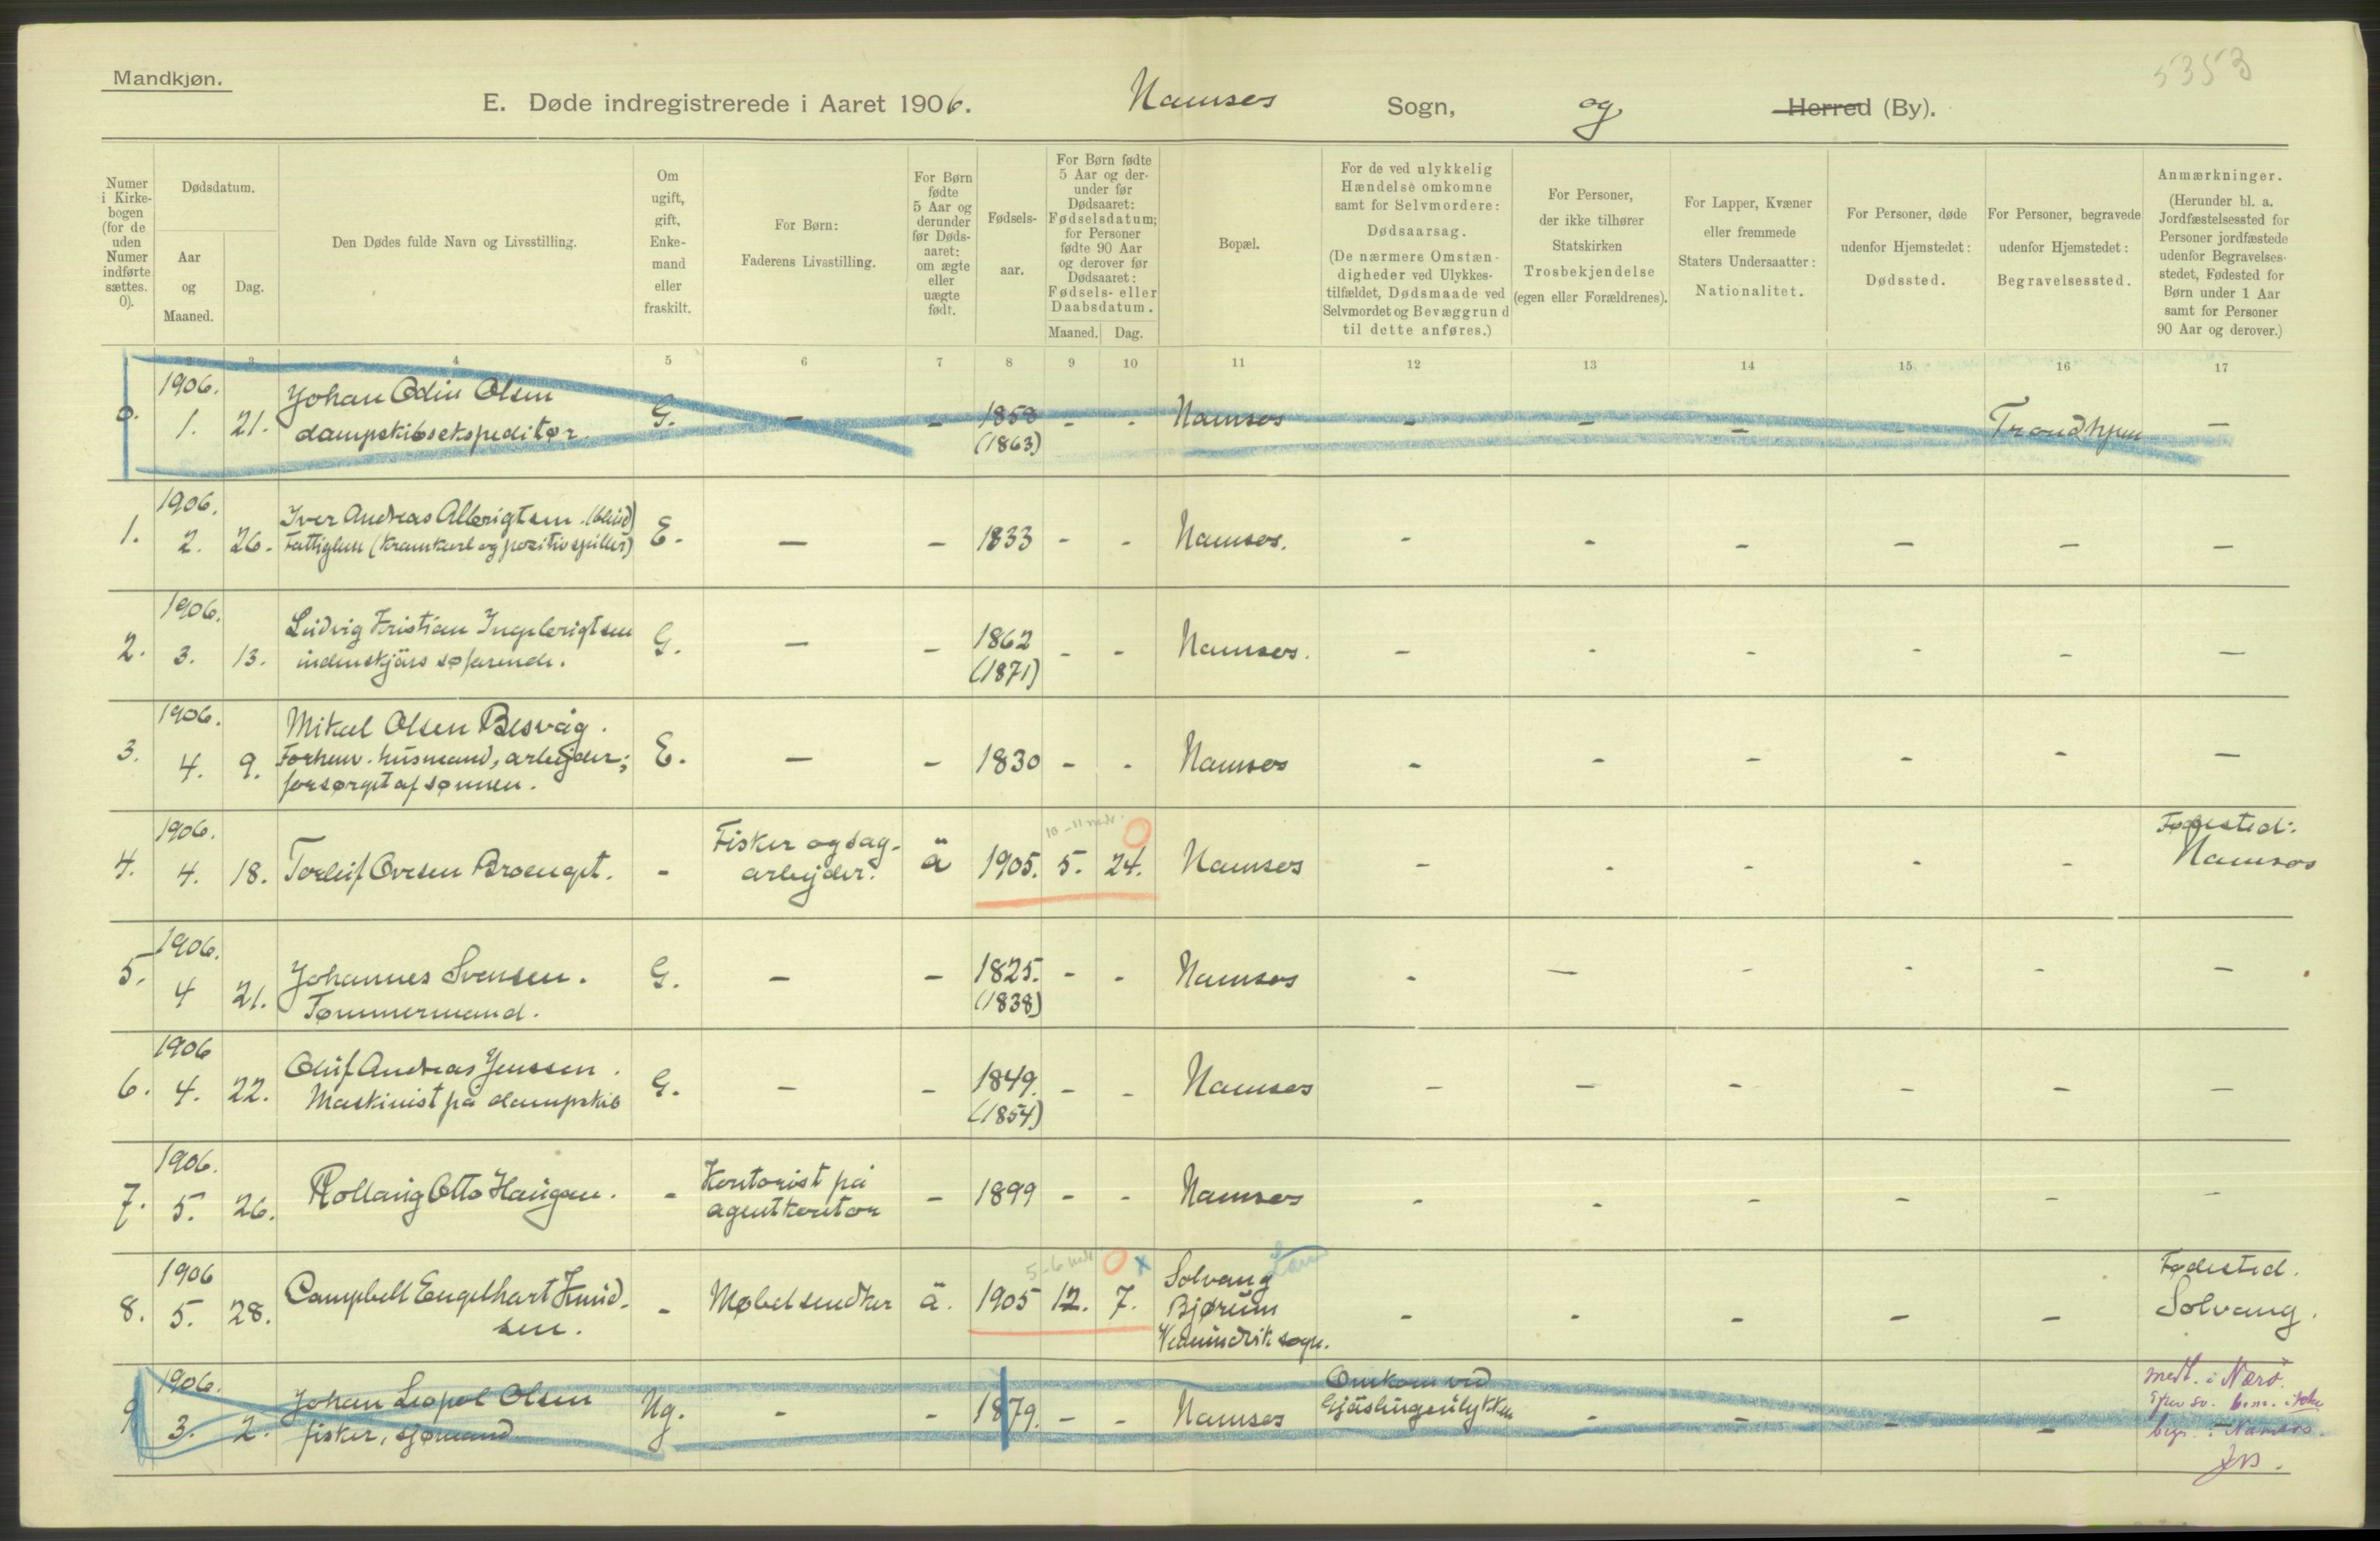 5353
Mandkjøn.
E. Døde indregistrerede i Aaret 1906. Namsos Sogn, og Herred (By).
Numer
i Kirke-
bogen
(for de
uden
Numer
indførte
sættes.
0).
Dødsdatum.
Aar
og
Maaned.
Dag.
Den Dødes fulde Navn og Livsstilling.
Om
ugift,
gift,
Enke-
mand
eller
fraskilt.
For Børn:
Faderens Livsstilling.
For Børn
fødte
5 Aar og
derunder
før Døds-
aaret:
om ægte
eller
uægte
født.
Fødsels-
aar.
For Børn fødte
5 Aar og der-
under før
Dødsaaret:
Fødselsdatum;
for Personer
fødte 90 Aar
og derover før
Dødsaaret:
Fødsels- eller
Daabsdatum.
Maaned. Dag.
Bopæl.
For de ved ulykkelig
Hændelse omkomne
samt for Selvmordere:
Dødsaarsag.
(De nærmere Omstæn-
digheder ved Ulykkes-
tilfældet, Dødsmaade ved
Selvmordet og Bevæggrund
til dette anføres.)
For Personer,
der ikke tilhører
Statskirken
Trosbekjendelse
(egen eller Forældrenes).
For Lapper, Kvæner
eller fremmede
Staters Undersaatter:
Nationalitet.
For Personer, døde
udenfor Hjemstedet:
Dødssted.
For Personer, begravede
udenfor Hjemstedet:
Begravelsessted.
Anmærkninger.
(Herunder bl. a.
Jordfæstelsessted for
Personer jordfæstede
udenfor Begravelses-
stedet, Fødested for
Børn under 1 Aar
samt for Personer
90 Aar og derover.)
2 3 4 5 6 7 8 9 10 11 12 13 14 15 16 17
1906.
0. 1. 21. Johan Odin Olsen G. - - 1858 - - Namsos - - - - Trondhjem -
dampskibsekspeditør. (1863)
1906.
1. 2. 26. Iver Andreas Albrigtsen. (blind) E. - - 1833 - - Namsos. - - - - - -
Fattiglem (kramkarl og positivspiller)
1906.
2. 3. 13. Ludvig Kristian Ingebrigtsen G. - - 1862 - - Namsos. - - - - - -
indenskjärs søfarende. (1871)
1906.
3. 4. 9. Mikal Olsen Besvåg. E. - - 1830 - - Namsos - - - - - -
Forhenv. husmand, arbejder;
forsørget af sønnen.
1906. 10-11 mdr. Fødested:
4. 4. 18. Torleif Ovesen Broenget. - Fisker og sag- ä 1905. 5. 24. Namsos - - - - - Namsos
arbejder.
1906.
5. 4 21. Johannes Svensen. G. - - 1825. - - Namsos - - - - - -
Tømmermand. (1838)
1906
6. 4. 22. Oluf Andreas Jenssen. G. - - 1849. - - Namsos - - - - - -
Maskinist på dampskib (1854)
1906.
7. 5. 26. Rollaug Otto Haugan. - Kontorist på - 1899 - - Namsos - - - - - -
agentkontor
1906 5-6 mdr x Fødested.
8. 5. 28. Campbell Engelhart Knud- - Møbelsnedker ä. 1905 12. 7. Solvang - - - - - Solvang.
sen. Bjørum
Vemundvik sogn.
1906.
9 3. 2. Johan Leopol Olsen Ug. - - 1879. - - Namsos Omkom ved - - - -
fisker, sjømand Gjäslingeulykken
medt. i Nærö